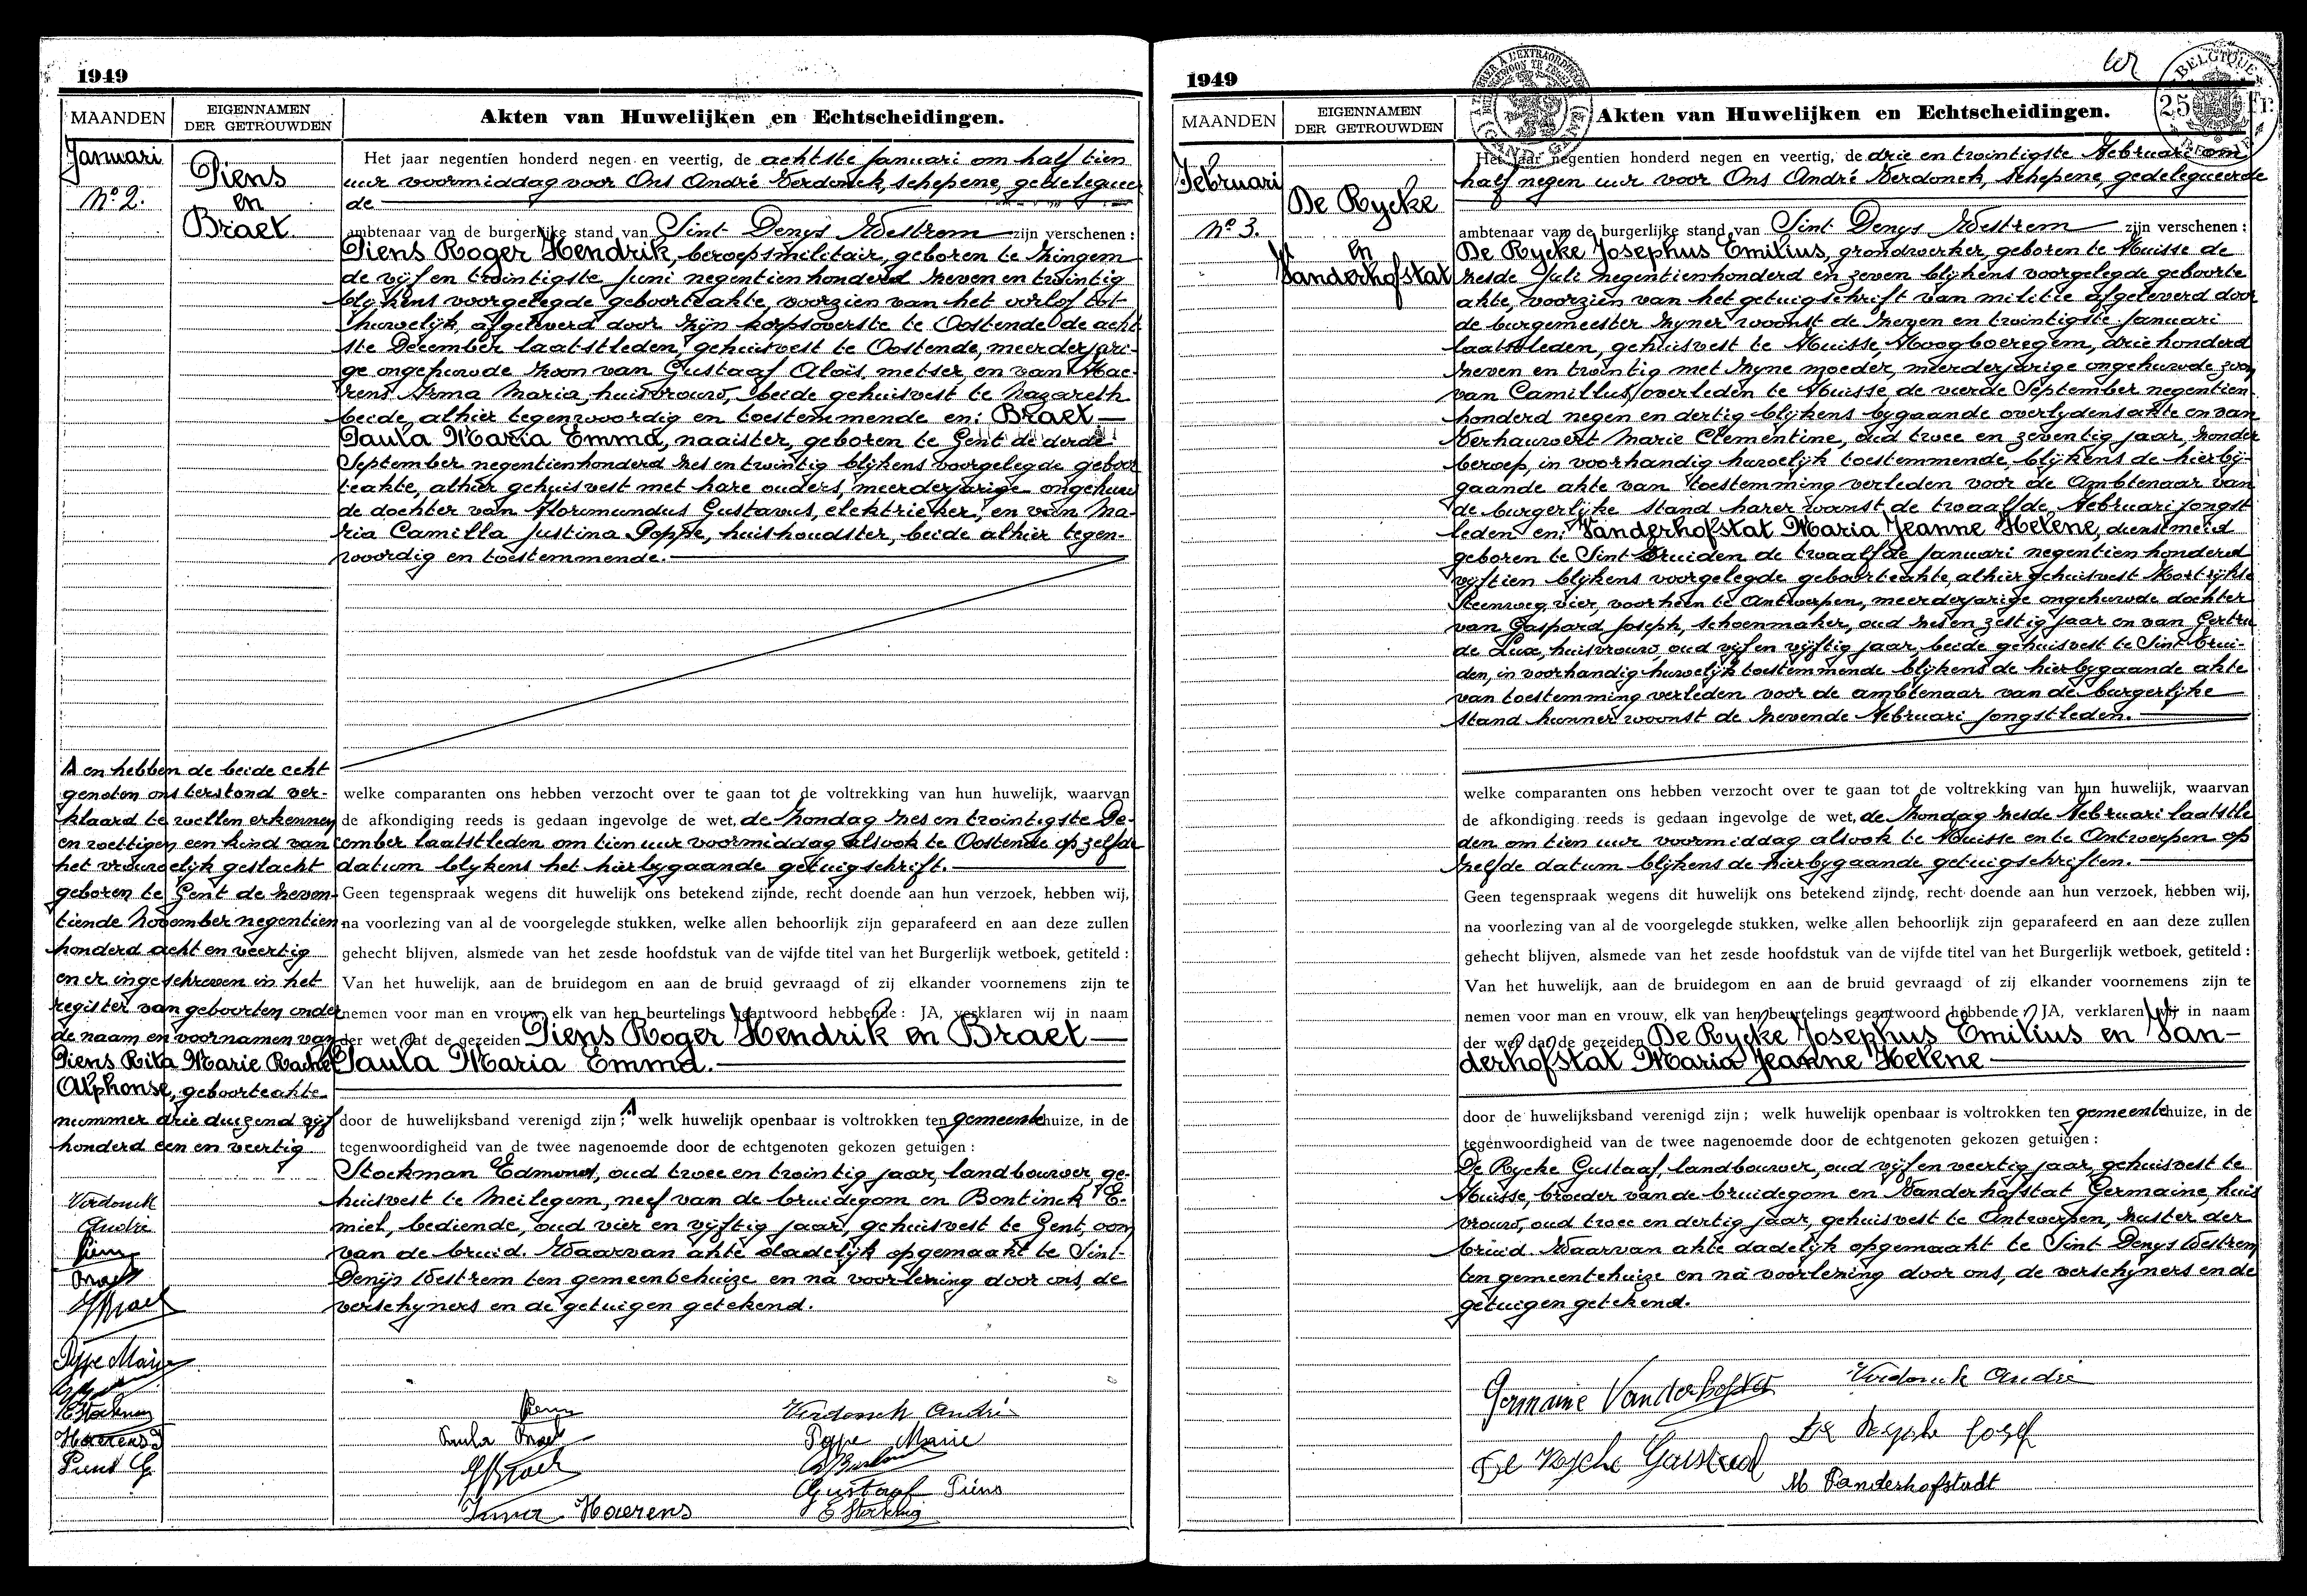 1949
MAANDEN
EIGENNAMEN
DER GETROUWDEN
Akten van Huwelijken en Echtscheidingen.
Januari
No 2.
Piens
en
Braet.
Het jaar negentien honderd negen en veertig, de achtste Januari om half tien
uur voormiddag voor Ons André Verdonck, schepene, gedelegueer
de
ambtenaar van de burgerlijke stand van Sint Denys Westrem zijn verschenen :
Piens Roger Hendrik, beroepsmilitair, geboren te Zingem
de vijf en twintigste Juni negentienhonderd zeven en twintig
blijkens voorgelegde geboorteakte, voorzien van het verlof tot
huwelijk, afgeleverd door zijn korpsoverste te Oostende de acht
ste December laatstleden, gehuisvest te Oostende, meerderjari-
ge ongehuwde zoon van Gustaaf Aloïs, metser en van Hae-
rens Irma Maria, huisvrouw, beide gehuisvest te Nazareth
beide, alhier tegenwoordig en toestemmende en: Braet
Paula Maria Emma, naaister, geboren te Gent de derde
September negentienhonderd zes en twintig blijkens voorgelegde geboor
teakte, alhier gehuisvest met hare ouders, meerderjarige ongehuw
de dochter van Floromundus Gustavus, elektrieker, en van Ma-
ria Camilla Justina Poppe, huishoudster, beide alhier tegen-
woordig en toestemmende.
welke comparanten ons hebben verzocht over te gaan tot de voltrekking van hun huwelijk, waarvan
de afkondiging reeds is gedaan ingevolge de wet, de Zondag zes en twintigste De-
cember laatstleden om tien uur voormiddag alsook te Oostende op zelfde
datum blijkens het hierbygaande getuigschrift.
Geen tegenspraak wegens dit huwelijk ons betekend zijnde, recht doende aan hun verzoek, hebben wij,
na voorlezing van al de voorgelegde stukken, welke allen behoorlijk zijn geparafeerd en aan deze zullen
gehecht blijven, alsmede van het zesde hoofdstuk van de vijfde titel van het Burgerlijk wetboek, getiteld :
Van het huwelijk, aan de bruidegom en aan de bruid gevraagd of zij elkander voornemens zijn te
nemen voor man en vrouw, elk van hen beurtelings geantwoord hebbende : JA, verklaren wij in naam
der wet dat de gezeiden Piens Roger Hendrik en Braet
Paula Maria Emma.
door de huwelijksband verenigd zijn ; welk huwelijk openbaar is voltrokken ten gemeentehuize, in de
tegenwoordigheid van de twee nagenoemde door de echtgenoten gekozen getuigen :
Stockman Edmond, oud twee en twintig jaar, landbouwer, ge-
huisvest te Meilegem, neef van de bruidegom en Bontinck E-
miel, bediende, oud vier en vijftig jaar, gehuisvest te Gent, oom
van de bruid. Waarvan akte dadelijk opgemaakt te Sint
Denijs Westrem ten gemeentehuize en na voorlezing door ons, de
verschijners en de getuigen getekend.
A en hebben de beide echt
genoten ons terstond ver-
klaard te willen erkennen
en wettigen een kind van
het vrouwelijk geslacht
geboren te Gent de zeven-
tiende November negentien
honderd acht en veertig
en er ingeschreven in het
register van geboorten onder
de naam en voornamen van
Piens Rita Marie Rachel
Alphonse, geboorteakte
nummer drie duizend vijf
honderd een en veertig
Verdonck
André
Piens
Braet
Poppe Marie
E Stockman
Haerens J
Piens G.
Piens
Verdonck André
Paula Braet
Poppe Marie
Gustaaf Piens
Irma Haerens
E Stockman
1949
MAANDEN
EIGENNAMEN
DER GETROUWDEN
Akten van Huwelijken en Echtscheidingen.
BELGIQUE
25 Fr.
Februari
No 3.
De Rycke
en
Vanderhofstat
Het jaar negentien honderd negen en veertig, de drie en twintigste Februari om
half negen uur voor Ons André Verdonck, schepene, gedelegueerde
ambtenaar van de burgerlijke stand van Sint Denys Westrem zijn verschenen :
De Rycke Josephus Emilius, grondwerker, geboren te Huisse de
zesde Juli negentienhonderd en zeven blijkens voorgelegde geboorte
akte, voorzien van het getuigschrift van militie afgeleverd door
de burgemeester zyner woonst de zeven en twintigste Januari
laatstleden, gehuisvest te Huisse, Hoogboeregem, driehonderd
zeven en twintig met zyne moeder, meerderjarige ongehuwde zoon
van Camillus overleden te Huisse de vierde September negentien
honderd negen en dertig blijkens bygaande overlydensakte en van
Verhauwert Marie Clementine, oud twee en zeventig jaar, zonder
beroep, in voorhandig huwelijk toestemmende, blijkens de hierby-
gaande akte van toestemming verleden voor de Ambtenaar van
de burgerlijke stand harer woonst de twaalfde Februari jongst
leden en: Vanderhofstat Maria Jeanne Helene, dienstmeid
geboren te Sint Truiden de twaalfde Januari negentien honderd
vijftien blijkens voorgelegde geboorteakte, alhier gehuisvest Kortrijkse
Steenweg, vier, voorheen te Antwerpen, meerderjarige ongehuwde dochter
van Gaspard Joseph, schoenmaker, oud zes en zestig jaar en van Gertru
de Lux, huisvrouw oud vijf en vijftig jaar, beide gehuisvest te Sint-Trui-
den, in voorhandig huwelijk toestemmende blijkens de hierbygaande akte
van toestemming verleden voor de ambtenaar van de burgerlijke
stand hunner woonst de zevende Februari jongstleden.
welke comparanten ons hebben verzocht over te gaan tot de voltrekking van hun huwelijk, waarvan
de afkondiging reeds is gedaan ingevolge de wet, de Zondag zesde Februari laatstle
den om tien uur voormiddag alsook te Huisse en te Antwerpen op
zelfde datum blijkens de hierbygaande getuigschriften.
Geen tegenspraak wegens dit huwelijk ons betekend zijnde, recht doende aan hun verzoek, hebben wij,
na voorlezing van al de voorgelegde stukken, welke allen behoorlijk zijn geparafeerd en aan deze zullen
gehecht blijven, alsmede van het zesde hoofdstuk van de vijfde titel van het Burgerlijk wetboek, getiteld :
Van het huwelijk, aan de bruidegom en aan de bruid gevraagd of zij elkander voornemens zijn te
nemen voor man en vrouw, elk van hen beurtelings geantwoord hebbende : JA, verklaren wij in naam
der wet dat de gezeiden De Rycke Josephus Emilius en Van-
derhofstat Maria Jeanne Helene
door de huwelijksband verenigd zijn ; welk huwelijk openbaar is voltrokken ten gemeentehuize, in de
tegenwoordigheid van de twee nagenoemde door de echtgenoten gekozen getuigen :
De Rycke Gustaaf, landbouwer, oud vijf en veertig jaar, gehuisvest te
Huisse, broeder van de bruidegom en Vanderhofstat Germaine, huis
vrouw, oud twee en dertig jaar, gehuisvest te Antwerpen, zuster der
bruid. Waarvan akte dadelijk opgemaakt te Sint Denys Westrem
ten gemeentehuize en na voorlezing door ons, de verschyners en de
getuigen getekend.
Germaine Vanderhofstat
Verdonck André
De Rycke Jozef
De Rycke Gustaaf
M Vanderhofstadt